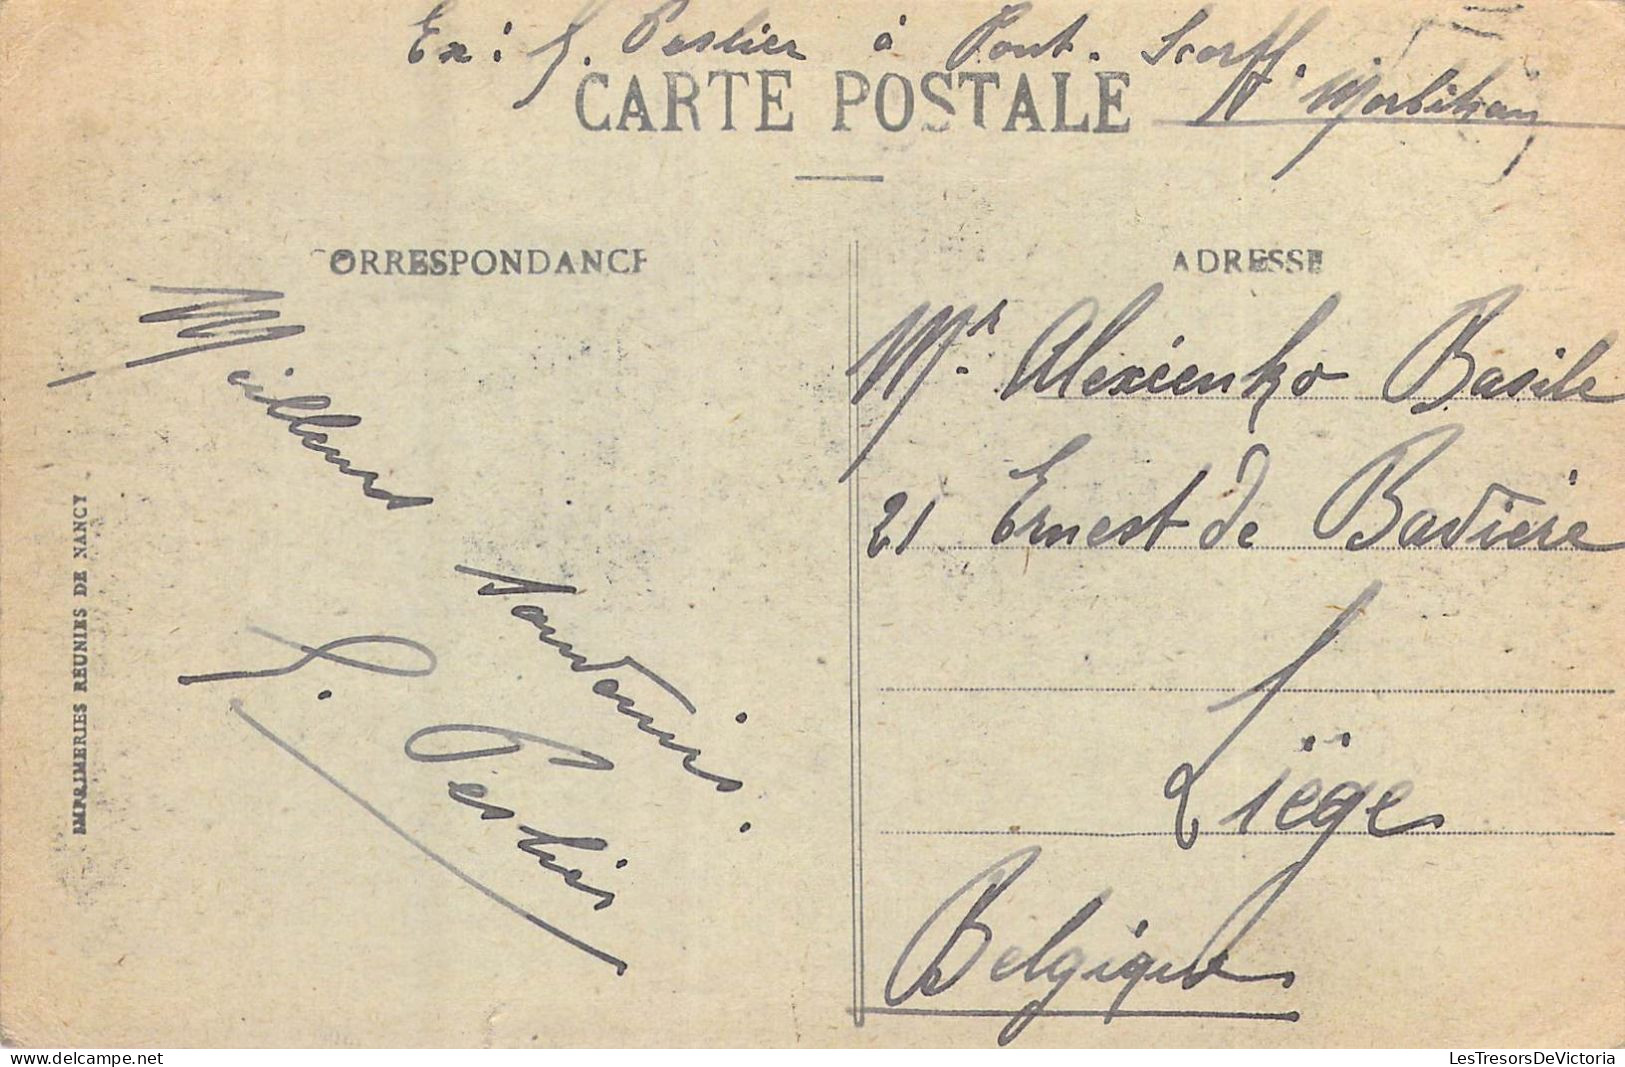 Ex: J. Peslier à Pont-Scorff.
Morbihan
CARTE POSTALE
CORRESPONDANCE
ADRESSE
Meilleurs
souvenirs.
J. Peslier
IMPRIMERIES RÉUNIES DE NANCY
Mr. Alexienko Basile
21 Ernest de Bavière
Liège
Belgique
LesTresorsDeVictoria